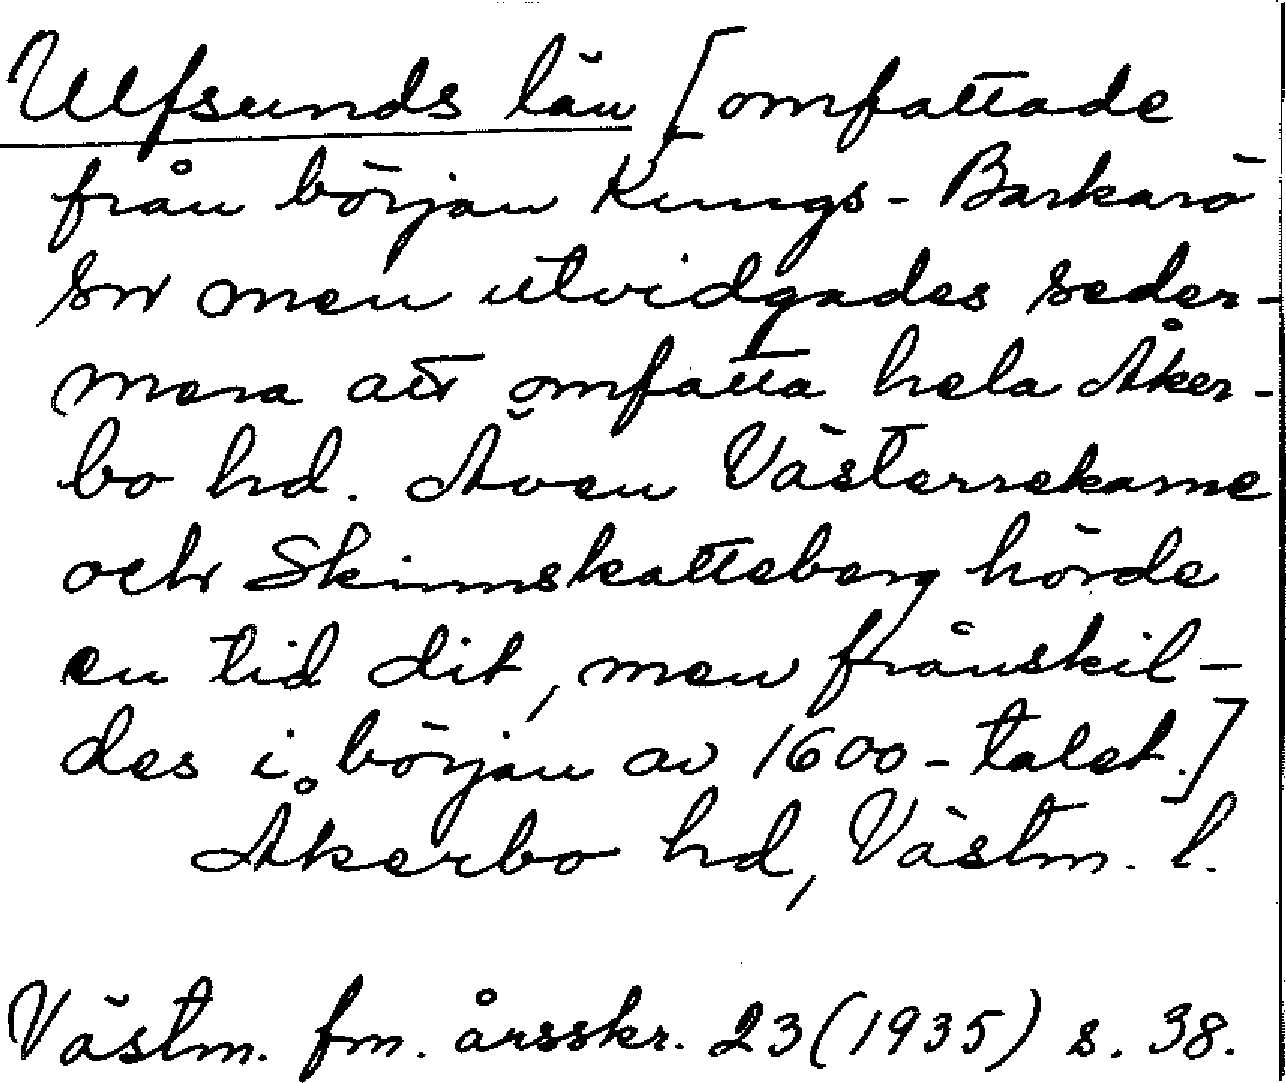 Ulfsunds län [omfattade
från början Kungs-Barkarö
sn men utvidgades seder-
mera att omfatta hela Åker-
bo hd. Även Västerrekarne
och Skinnskatteberg hörde
en tid dit, men frånskil-
des i början av 1600-talet.]
Åkerbo hd, Västm. l.
Västm. fm. årsskr. 23 (1935) s. 38.